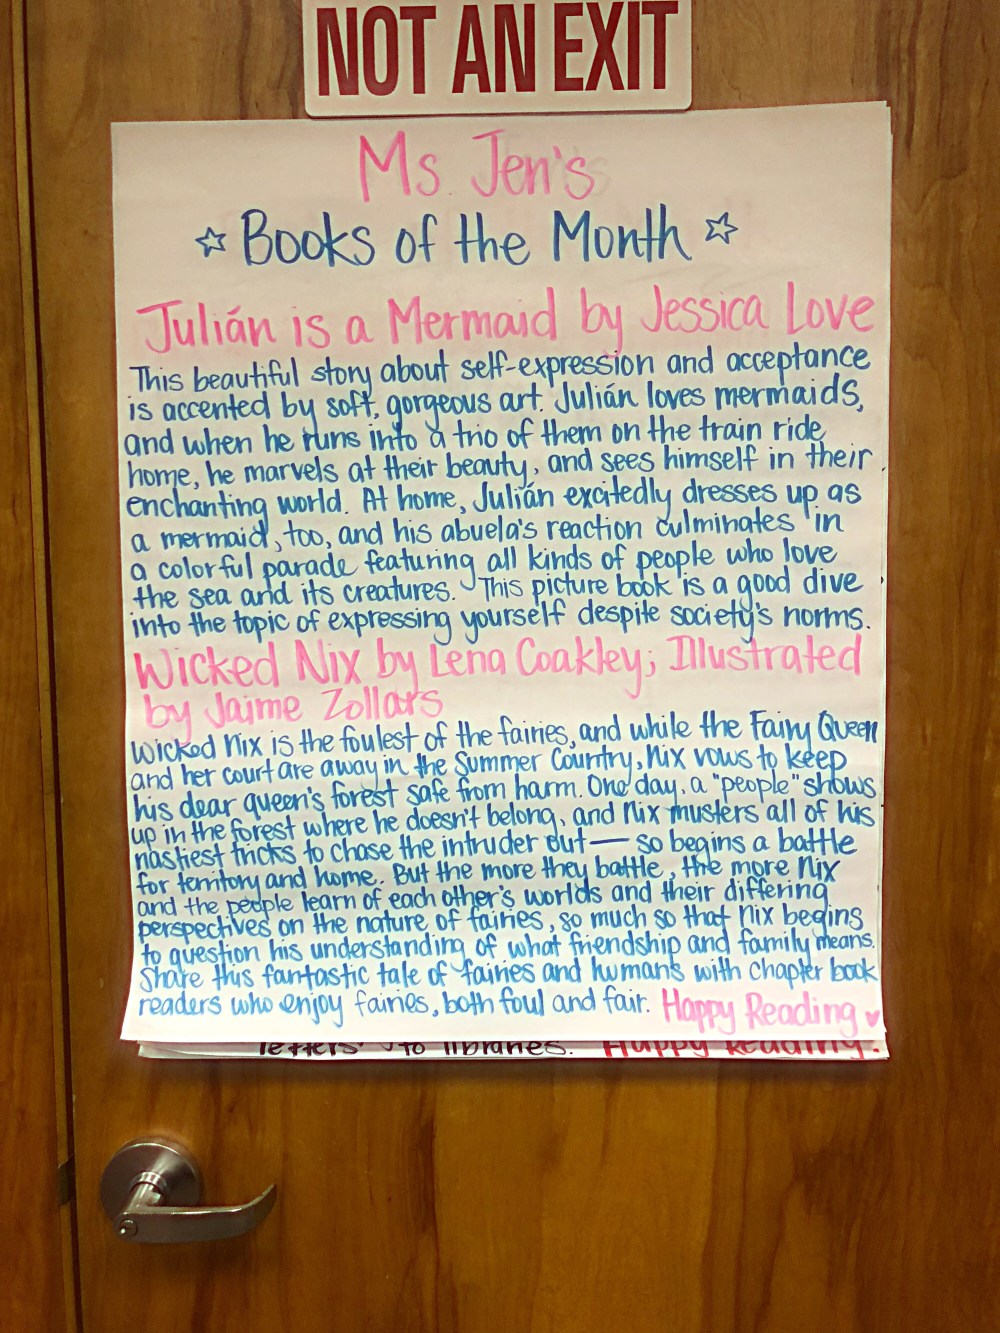 NOT AN EXIT
Ms Jen's
☆ Books of the Month ☆
Julián is a Mermaid by Jessica Love
This beautiful story about self-expression and acceptance
is accented by soft, gorgeous art. Julián loves mermaids,
and when he runs into a trio of them on the train ride
home, he marvels at their beauty, and sees himself in their
enchanting world. At home, Julián excitedly dresses up as
a mermaid, too, and his abuela's reaction culminates in
a colorful parade featuring all kinds of people who love
the sea and its creatures. This picture book is a good dive
into the topic of expressing yourself despite society's norms.
Wicked Nix by Lena Coakley; Illustrated
by Jaime Zollars
Wicked Nix is the foulest of the fairies, and while the Fairy Queen
and her court are away in the Summer Country, Nix vows to keep
his dear queen's forest safe from harm. One day, a "people" shows
up in the forest where he doesn't belong, and Nix musters all of his
nastiest tricks to chase the intruder out — so begins a battle
for territory and home. But the more they battle, the more Nix
and the people learn of each other's worlds and their differing
perspectives on the nature of fairies, so much so that Nix begins
to question his understanding of what friendship and family means.
Share this fantastic tale of fairies and humans with chapter book
readers who enjoy fairies, both foul and fair. Happy Reading ♥
letters to libraries. Happy Reading!